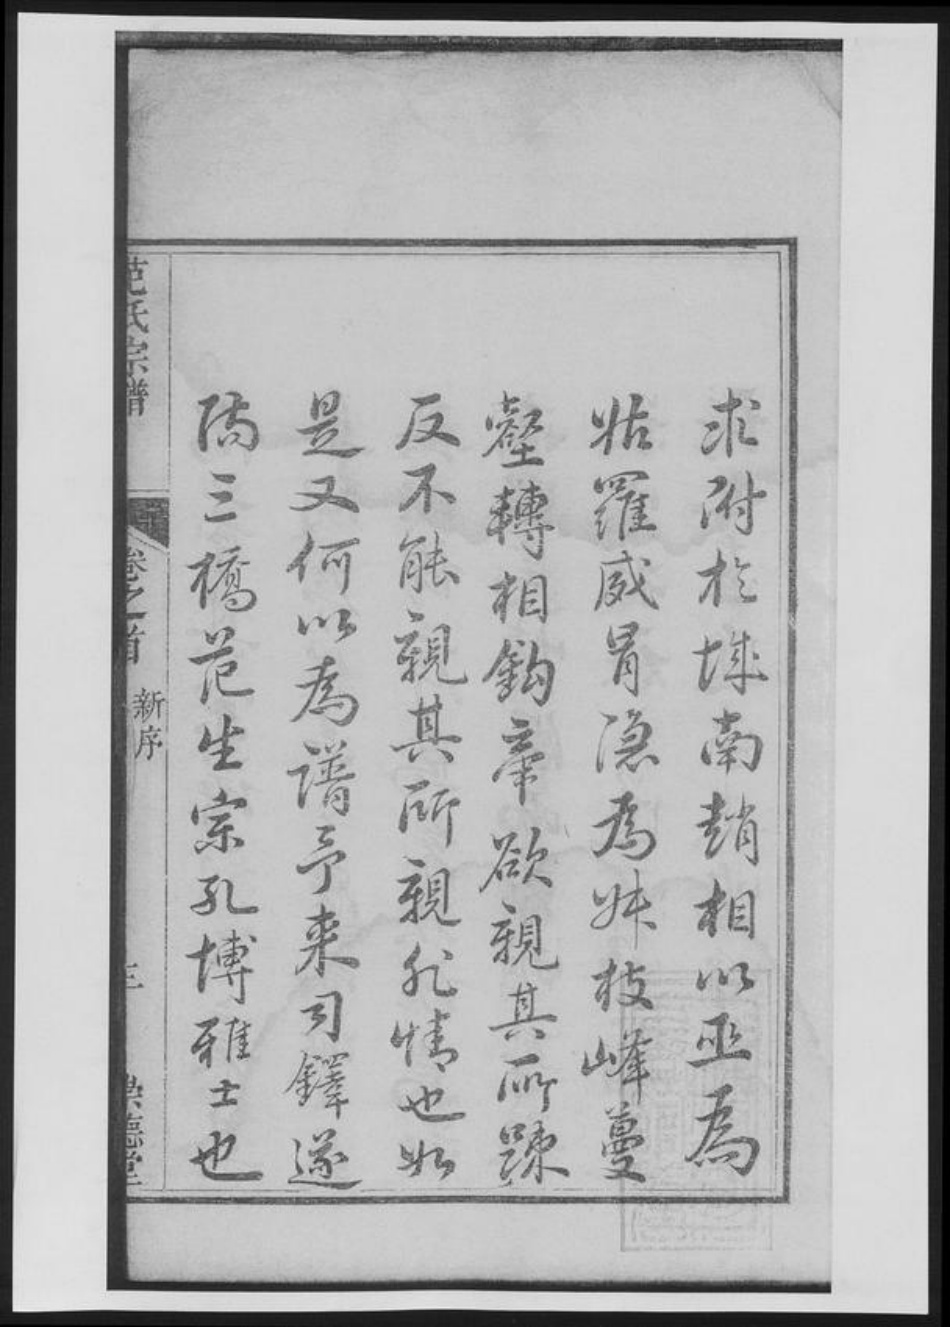 求附於城南趙相以巫為
姑羅威胃隱為妹枝峰蔓
壑轉相鈎牽欲親其所踈
反不能親其所親非情也如
是又何以為譜予来司鐸遂
三橋范生宗孔博雅士也
范氏宗譜
卷之首
新序
三
崇德堂